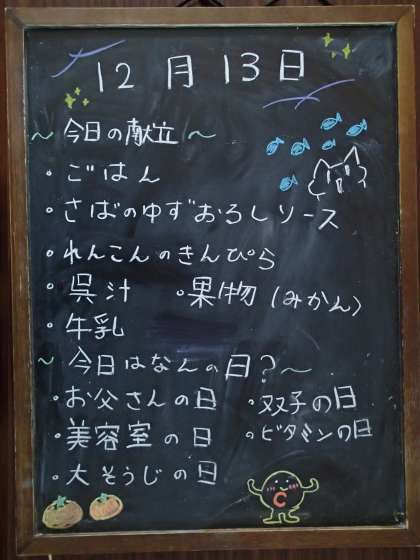 12月13日
～今日の献立～
・ごはん
・さばのゆずおろしソース
・れんこんのきんぴら
・呉汁 ・果物(みかん)
・牛乳
～今日はなんの日？～
・お父さんの日 ・双子の日
・美容室の日 ・ビタミンの日
・大そうじの日
C